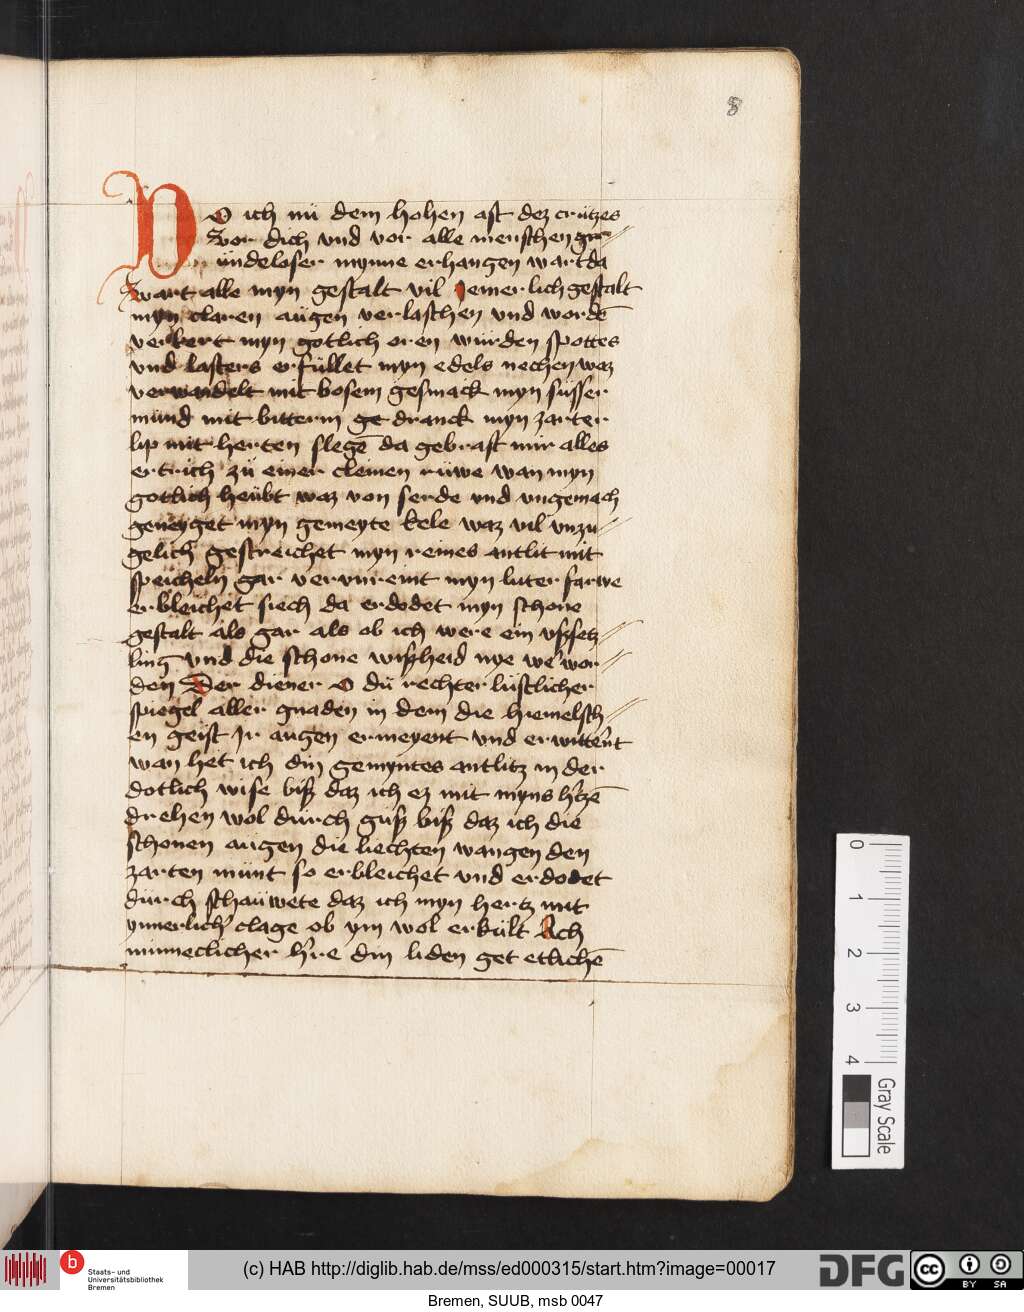 8
DO ich nü dem hohen ast dez crützes
vor dich vnd vor alle menschen
ündeloser mynne erhangen wart da
wart alle myn gestalt vil jemerlich gestalt
myn claren augen verlaschen vnd wordē
verkert myn gotlich oren würden spottes
vnd lasters erfüllet myn edels nechen waz
verwandelt mit bosem gesmack myn süsser
münd mit bitterm ge dranck myn zarter
lip mit herten slegē da gebrast mir alles
ertrich zü einer cleinen rüwe wan myn
gotlich heübt waz von serde vnd vngemach
geneyget myn gemeyte kele waz vil vnzu//
gelich gestreichet myn reines antlit mit
speicheln gar vervnreint myn luter farwe
erbleichet siech da erdodet myn schone
gestalt als gar als ob ich were ein vßsetz//
ling vnd die schone wißheid nye we wor//
den Der diener O dü rechter lüstlicher
spiegel aller gnaden in dem die hiemelsch//
en geist Jr augen ermeyent vnd erwittent
wan het ich din gemyntes antlitz in der
dotlich wise biß daz ich ez mit myns h'tzē
drehen wol dürch güß biß daz ich die
schonen augen die liechten wangen den
zarten münt so erbleichet vnd erdodet
dürch schaüwete daz ich myn hertz mit
ynnerlich' clage ob ym wol erkült Ach
minneclicher h're din liden get etlichē
0 1 2 3 4
Gray Scale
b
Staats- und
Universitätsbibliothek
Bremen
(c) HAB http://diglib.hab.de/mss/ed000315/start.htm?image=00017
DFG
cc BY SA
Bremen, SUUB, msb 0047